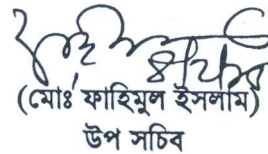 (মোঃ ফাহিমুল ইসলাম)
উপ সচিব